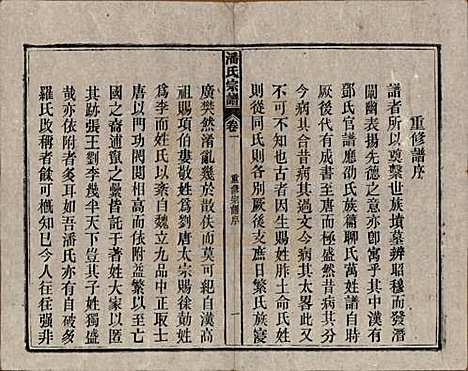 重修譜序
譜者所以奠繫世族墳墓辨昭穆而發潛
闡幽表揚先德之意亦卽寓乎其中漢有
鄧氏官譜應劭氏族篇聊氏萬姓譜自時
厥後代有成書然古病其繁今病其分
析今病其合昔病其過文今病其太畧此又
不可不知也古者因生賜姓胙土命氏姓
則從同氏則各別厥後支庶日繁氏族寖
潘氏宗譜 卷一 重修宗譜序 一
廣樊然淆亂幾於散佚不可收拾自漢高
祖賜項伯婁敬姓爲劉唐太宗賜徐勣姓
爲李於是氏族以紊自魏立九品中正取士
唐以門功閥閱相高而依附益繁以至亡
國之裔逋竄之臺皆託於著姓大家以匿
其跡張王劉李幾半天下豈其子姓獨盛
哉亦依附者多耳如吾潘氏亦有自破多
羅氏改稱者餘可槪已今人往往強非